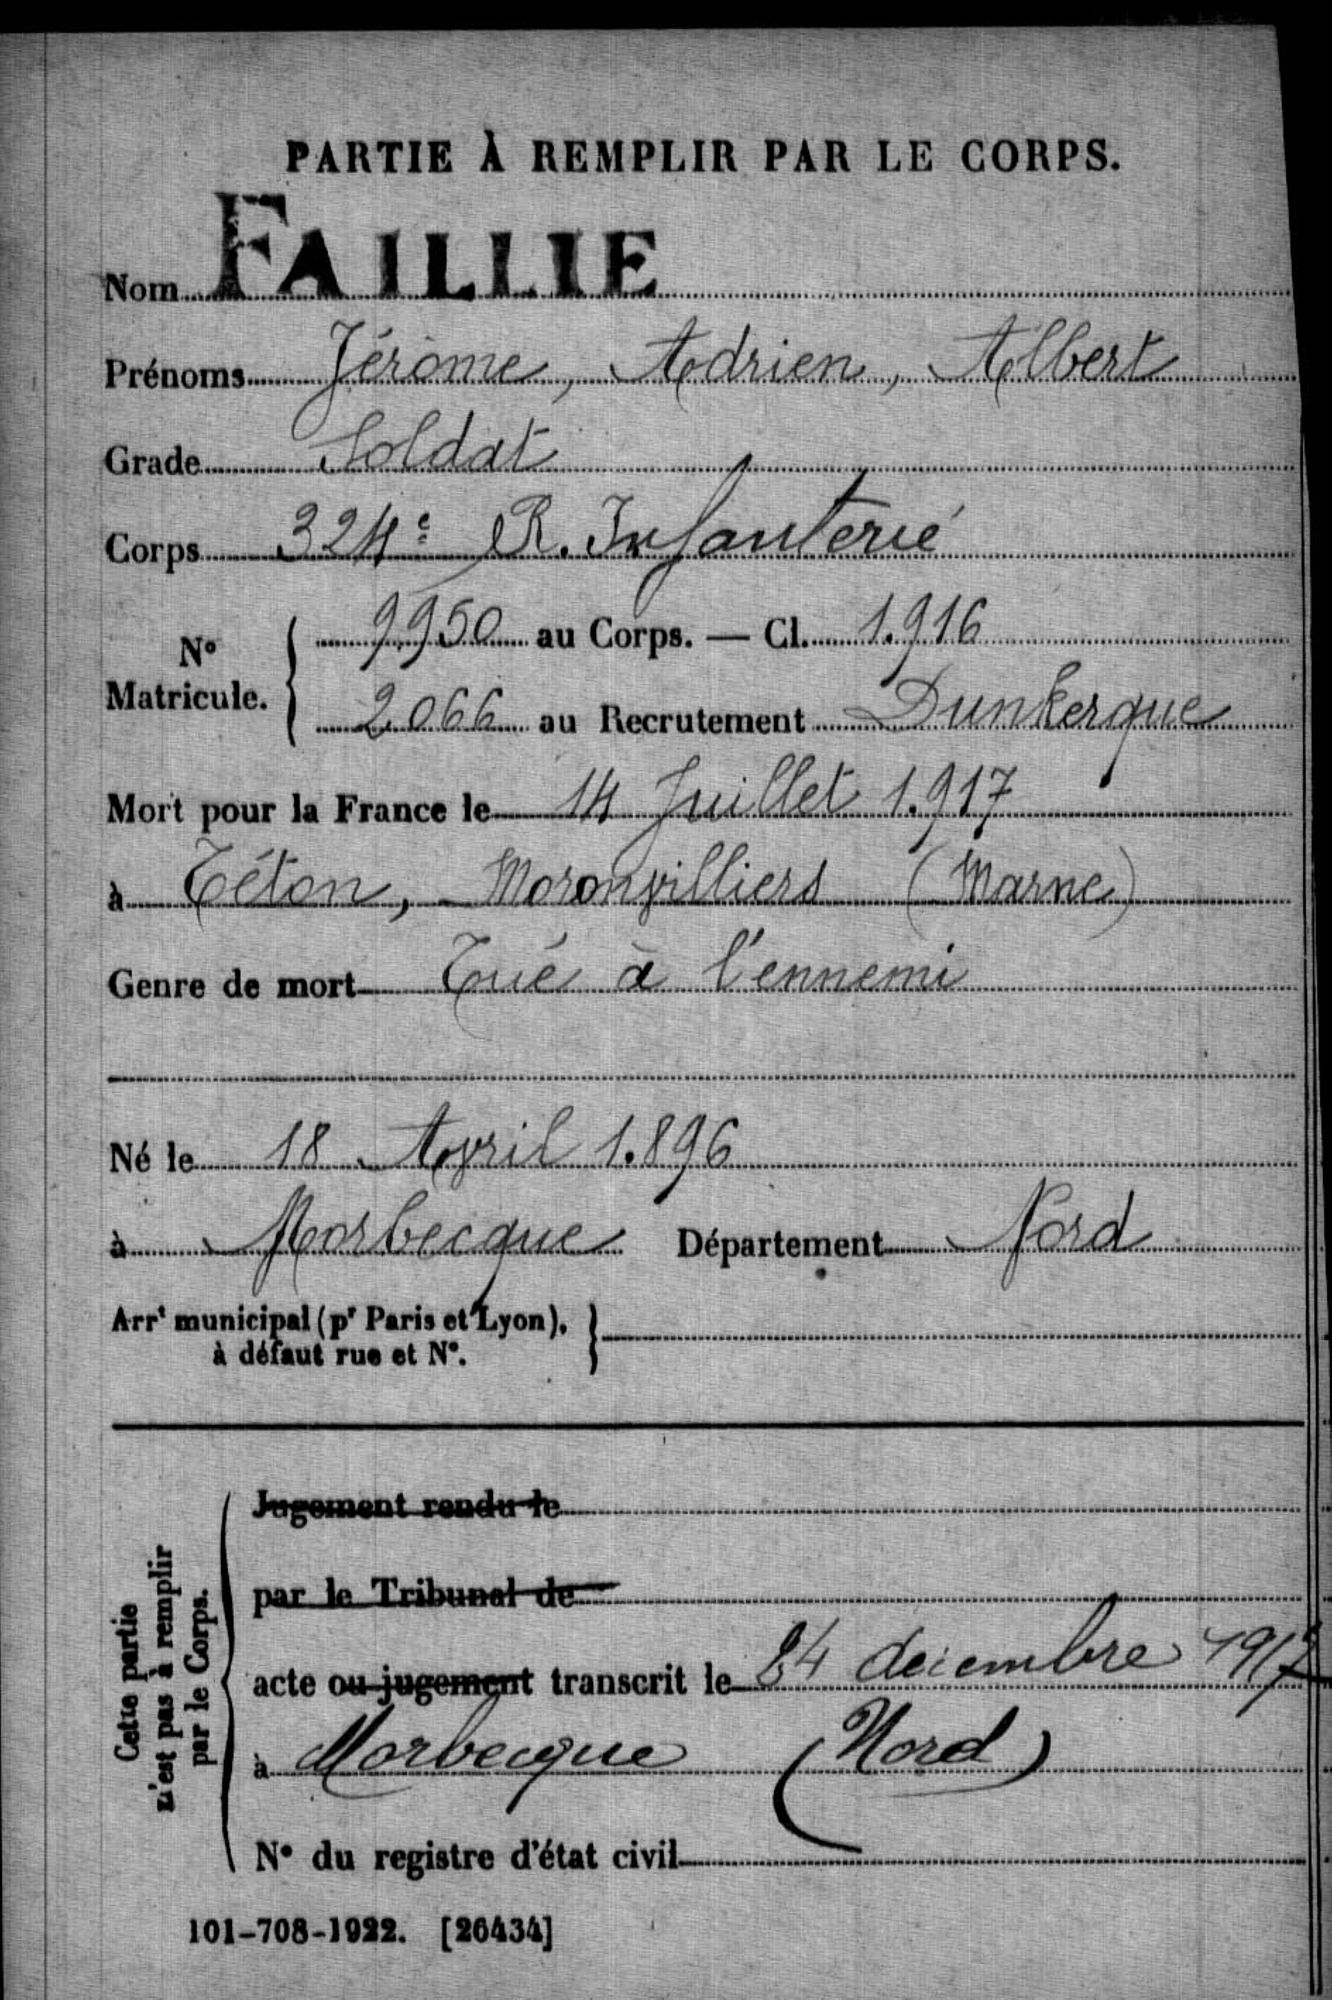 PARTIE À REMPLIR PAR LE CORPS.
Nom FAILLIE
Prénoms Jérome, Adrien, Albert
Grade Soldat
Corps 324e R. Infanterie
N° Matricule. { 9950 au Corps. — Cl. 1.916
2066 au Recrutement Dunkerque
Mort pour la France le 14 Juillet 1.917
à Téton, Moronvilliers (Marne)
Genre de mort Tué à l'ennemi
Né le 18 Avril 1.896
à Morbecque Département Nord
Arrt municipal (pr Paris et Lyon), }
à défaut rue et N°.
Cette partie
n'est pas à remplir
par le Corps.
Jugement rendu le
par le Tribunal de
acte ou jugement transcrit le 24 decembre 1917
à Morbecque (Nord)
N° du registre d'état civil
101-708-1922. [26434]